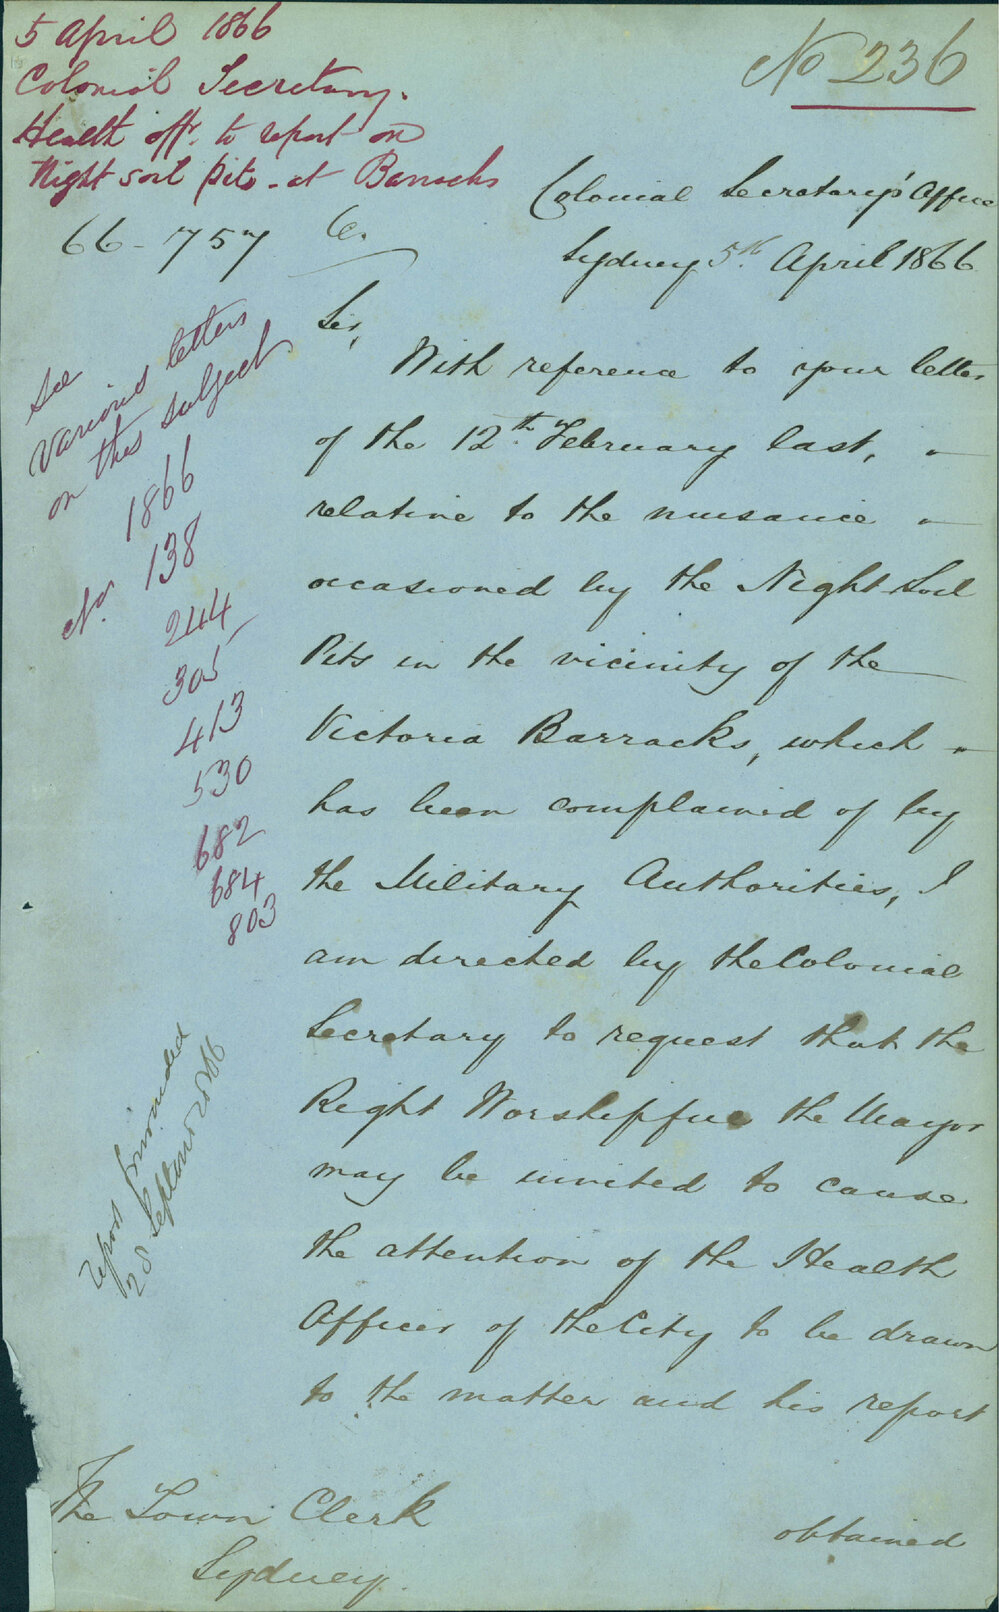 5 April 1866
Colonial Secretary.
Health offr. to report on
Night soil pits - at Barracks
No 236
66-757
Colonial Secretary's Office
Sydney 5th April 1866
Sir,
With reference to your letter
of the 12th February last,
relative to the nuisance
occasioned by the Night Soil
Pits in the vicinity of the
Victoria Barracks, which
has been complained of by
the Military Authorities, I
am directed by the Colonial
Secretary to request that the
Right Worshipful the Mayor
may be invited to cause
the attention of the Health
Officer of the City to be drawn
to the matter and his report
obtained
The Town Clerk
Sydney.
See
various letters
on this subject
1866
No. 138
244
305
413
530
682
684
803
report forwarded
28 September 1866